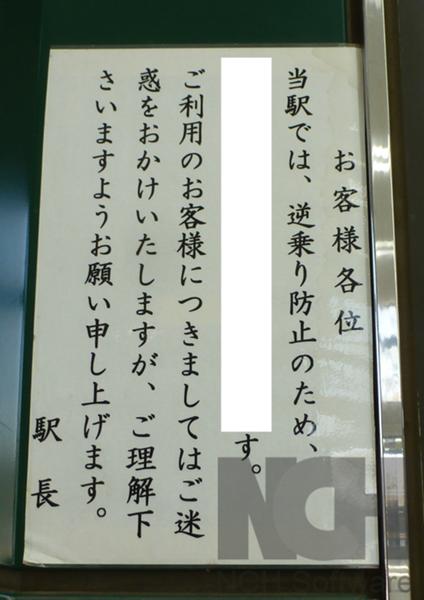 お客様各位
当駅では、逆乗り防止のため、
す。
ご利用のお客様につきましてはご迷
惑をおかけいたしますが、ご理解下
さいますようお願い申し上げます。
駅長
NCH
NCH Software